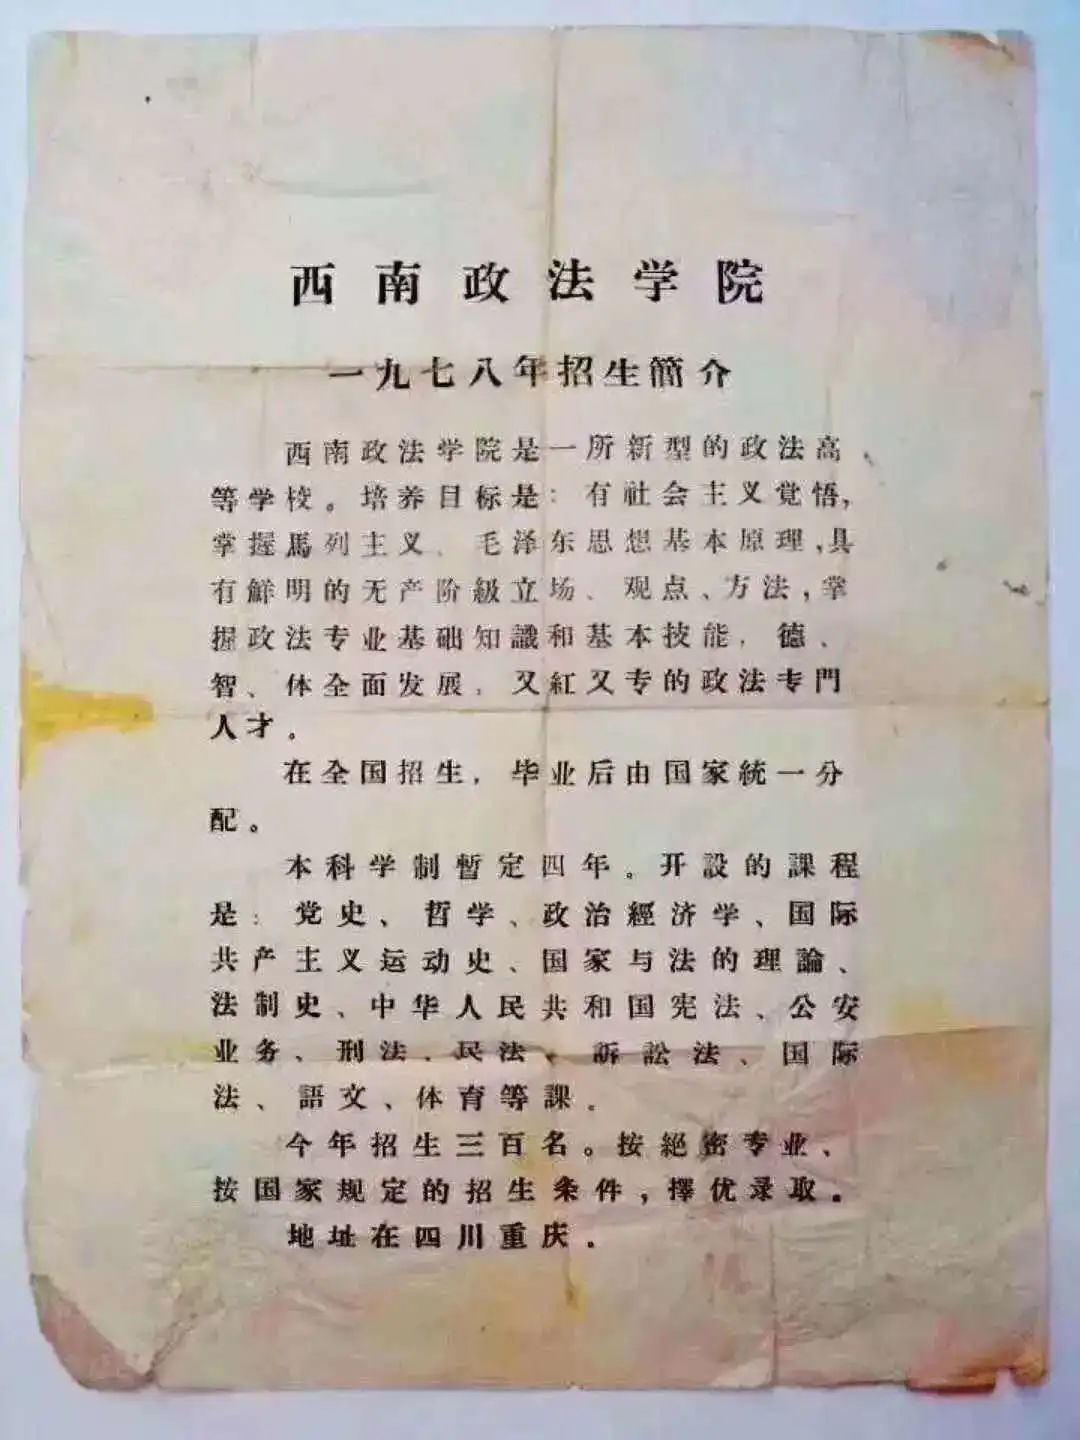 西南政法学院
一九七八年招生簡介
西南政法学院是一所新型的政法高
等学校。培养目标是：有社会主义觉悟,
掌握馬列主义、毛泽东思想基本原理,具
有鮮明的无产阶級立场、观点、方法,掌
握政法专业基础知識和基本技能，德、
智、体全面发展，又紅又专的政法专門
人才。
在全国招生，毕业后由国家統一分
配。
本科学制暫定四年。开設的課程
是：党史、哲学、政治經济学、国际
共产主义运动史、国家与法的理論、
法制史、中华人民共和国宪法、公安
业务、刑法、民法、訴訟法、国际
法、語文、体育等課。
今年招生三百名。按絕密专业、
按国家规定的招生条件,擇优录取。
地址在四川重庆。